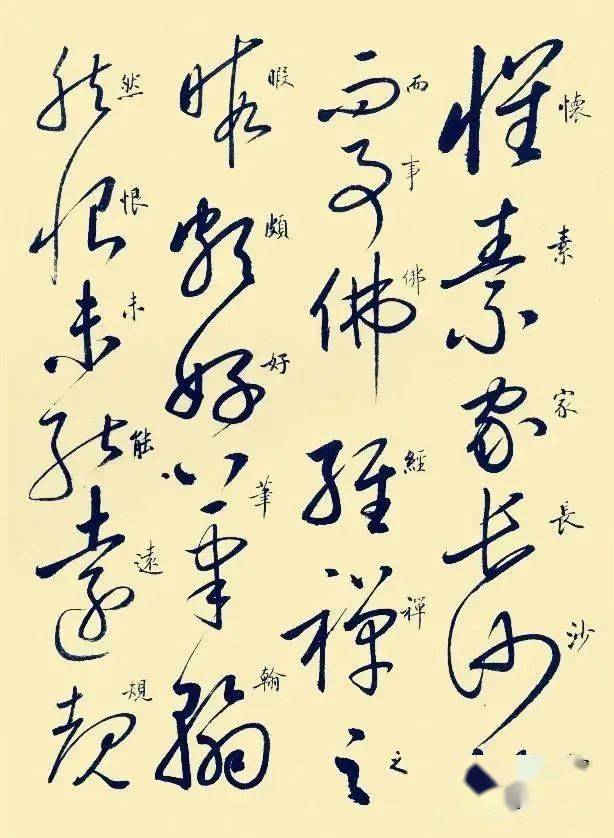 懷素家長沙
而事佛經禪之
暇頗好筆翰
然恨未能遠規